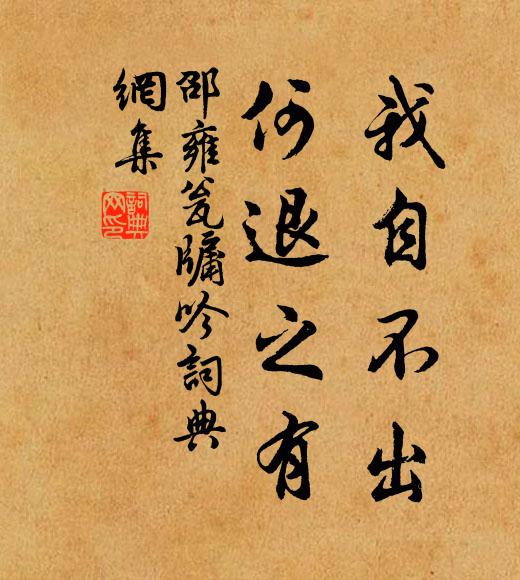 我自不出
何退之有
邵雍瓮牖吟詞典
網集
詞典
网印